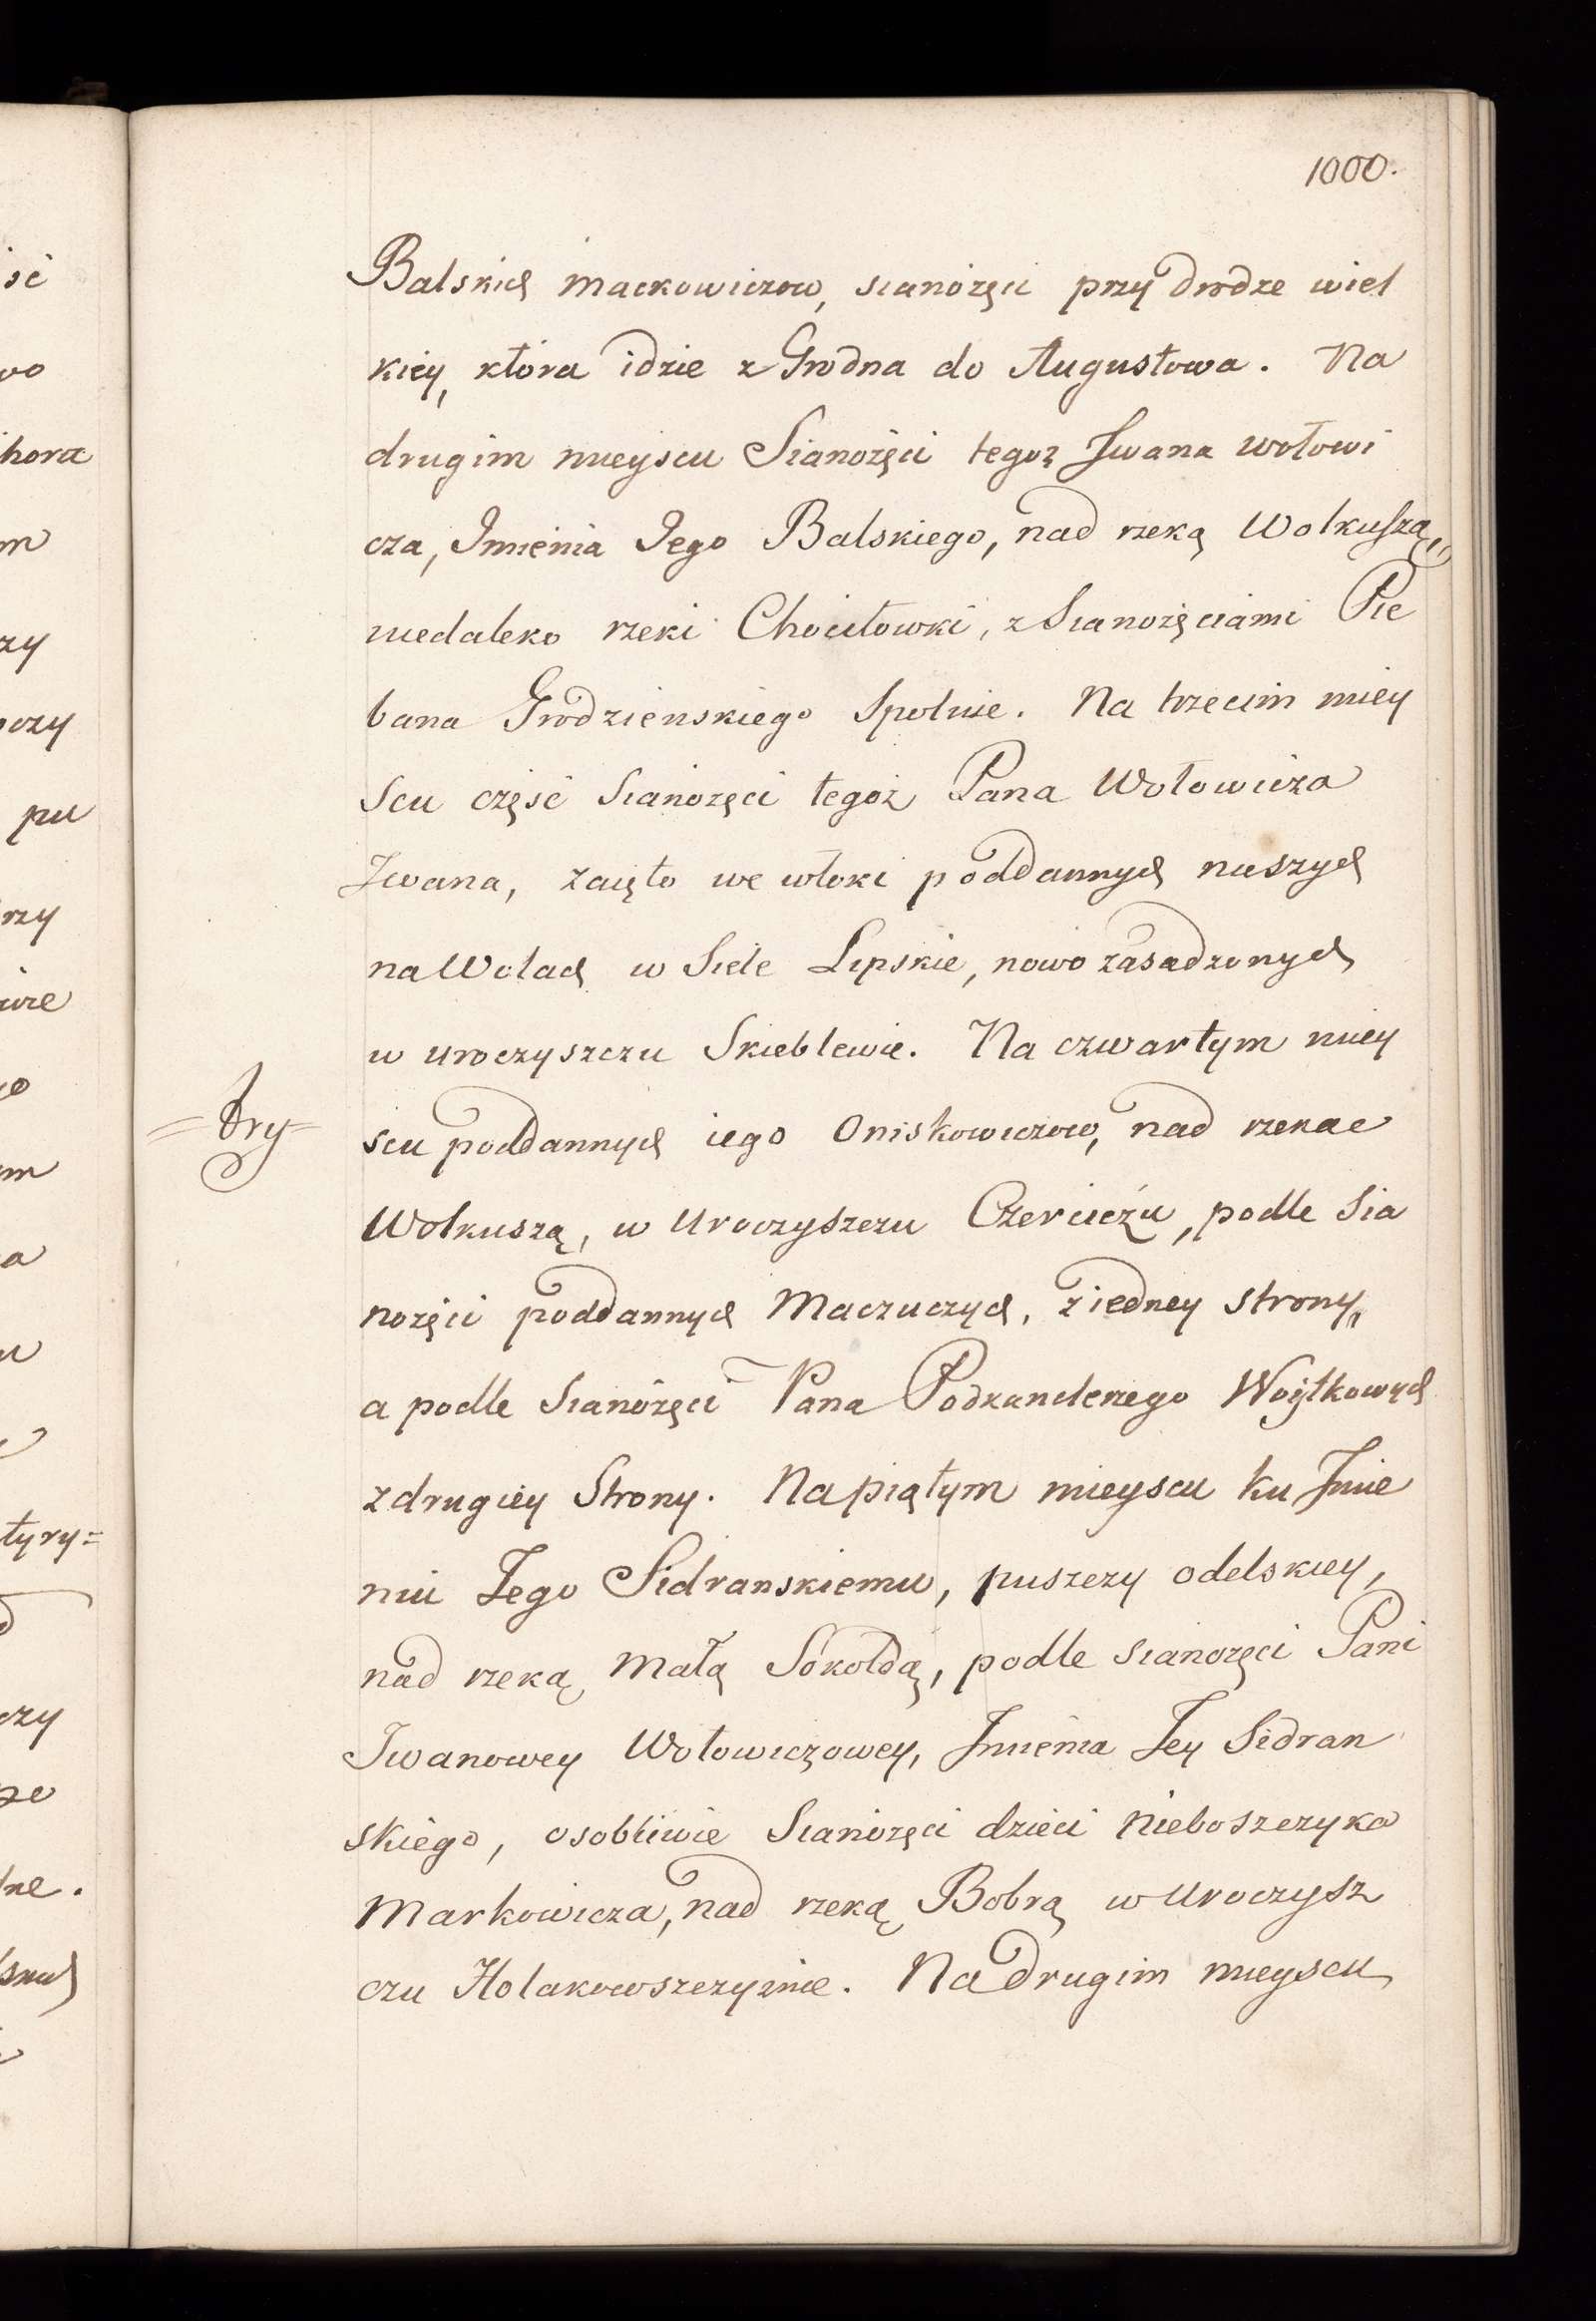 1000.
Balskich Mackowiczow, sianożęci przy drodze wiel
kiey, która idzie z Grodna do Augustowa. Na
drugim mieyscu Sianożęci tegoż Iwana Wołowi
cza, Imienia Jego Balskiego, nad rzeką Wolkuszą,
niedaleko rzeki Chociłowki, z Sianożęciami Ple
bana Grodzienskiego Spolnie. Na trzecim miey
scu częsć Sianożęci tegoż Pana Wołowicza
Iwana, zaięto we włoki poddannych naszych
na Wolach w Siele Lipskie, nowo zasadzonych
w uroczyszczu Skieblewie. Na czwartym miey
=try=
scu poddannych iego Oniskowiczow, nad rzekae
Wolkuszą, w Uroczyszczu Czercieźu, podle Sia
nożęci poddannych Maczuczych, z iedney strony,
a podle Sianożęci Pana Podkanclerzego Woytkowych
z drugiey Strony. Na piątym mieyscu ku Imie
niu Jego Sidranskiemu, puszczy odelskiey,
nad rzeką Małą Sokołdą, podle sianożęci Pani
Iwanowey Wołowiczowey, Imienia Jey Sidran
skiego, osobliwie Sianożęci dzieci Nieboszczyka
Markowicza, nad rzeką Bobrą w Uroczysz
czu Holakowszczyznie. Na drugim mieyscu